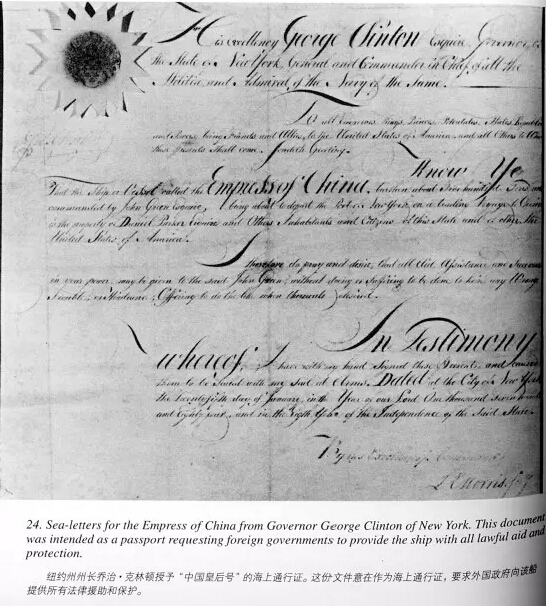 His Excellency George Clinton Esquire, Governor of
the State of New York, General and Commander in Chief of all the
Militia, and Admiral of the Navy of the Same.
To all Emperors, Kings, Princes, Potentates, States, Republics
and Powers, being Friends and Allies, to the United States of America, and all Others to Whom
these presents Shall come. Sendeth Greeting.
Know Ye
that the Ship or Vessel called the Empress of China, burthen about Four hundred Tons
commanded by John Green Esquire, being about to depart the Port of New York, on a trading Voyage to Canton
is the property of Daniel Parker Esquire and Others Inhabitants and Citizens of this State and of other the
United States of America.
I therefore do pray and desire, that all Aid Assistance and
in your power, may be given to the said John Green, without doing or suffering to be done to him any Wrong
Trouble, or Hindrance; Offering to do the like when thereunto desired.
In Testimony
whereof, I have with my hand Signed these Presents, and caused
them to be Sealed with my Seal at Arms. Dated at the City of New York
the day of January, in the Year of our Lord One thousand Seven hundred
and Eighty four, and in the Eighth Year of the Independence of the Said State.
By his Excellency's Command
Morris
24. Sea-letters for the Empress of China from Governor George Clinton of New York. This document
was intended as a passport requesting foreign governments to provide the ship with all lawful aid and
protection.
纽约州州长乔治·克林顿授予“中国皇后号”的海上通行证。这份文件意在作为海上通行证，要求外国政府向该船
提供所有法律援助和保护。